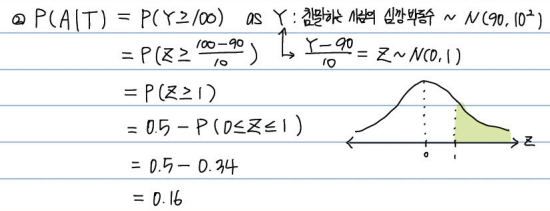 ② P(A|T) = P(Y≥100) as Y : 침말하는 사람의 심장 박동수 ~ N(90, 10²)
= P(Z ≥ (100-90)/10) ↳ (Y-90)/10 = Z ~ N(0, 1)
= P(Z ≥ 1)
= 0.5 - P(0≤Z≤1)
= 0.5 - 0.34
= 0.16
0 1 Z